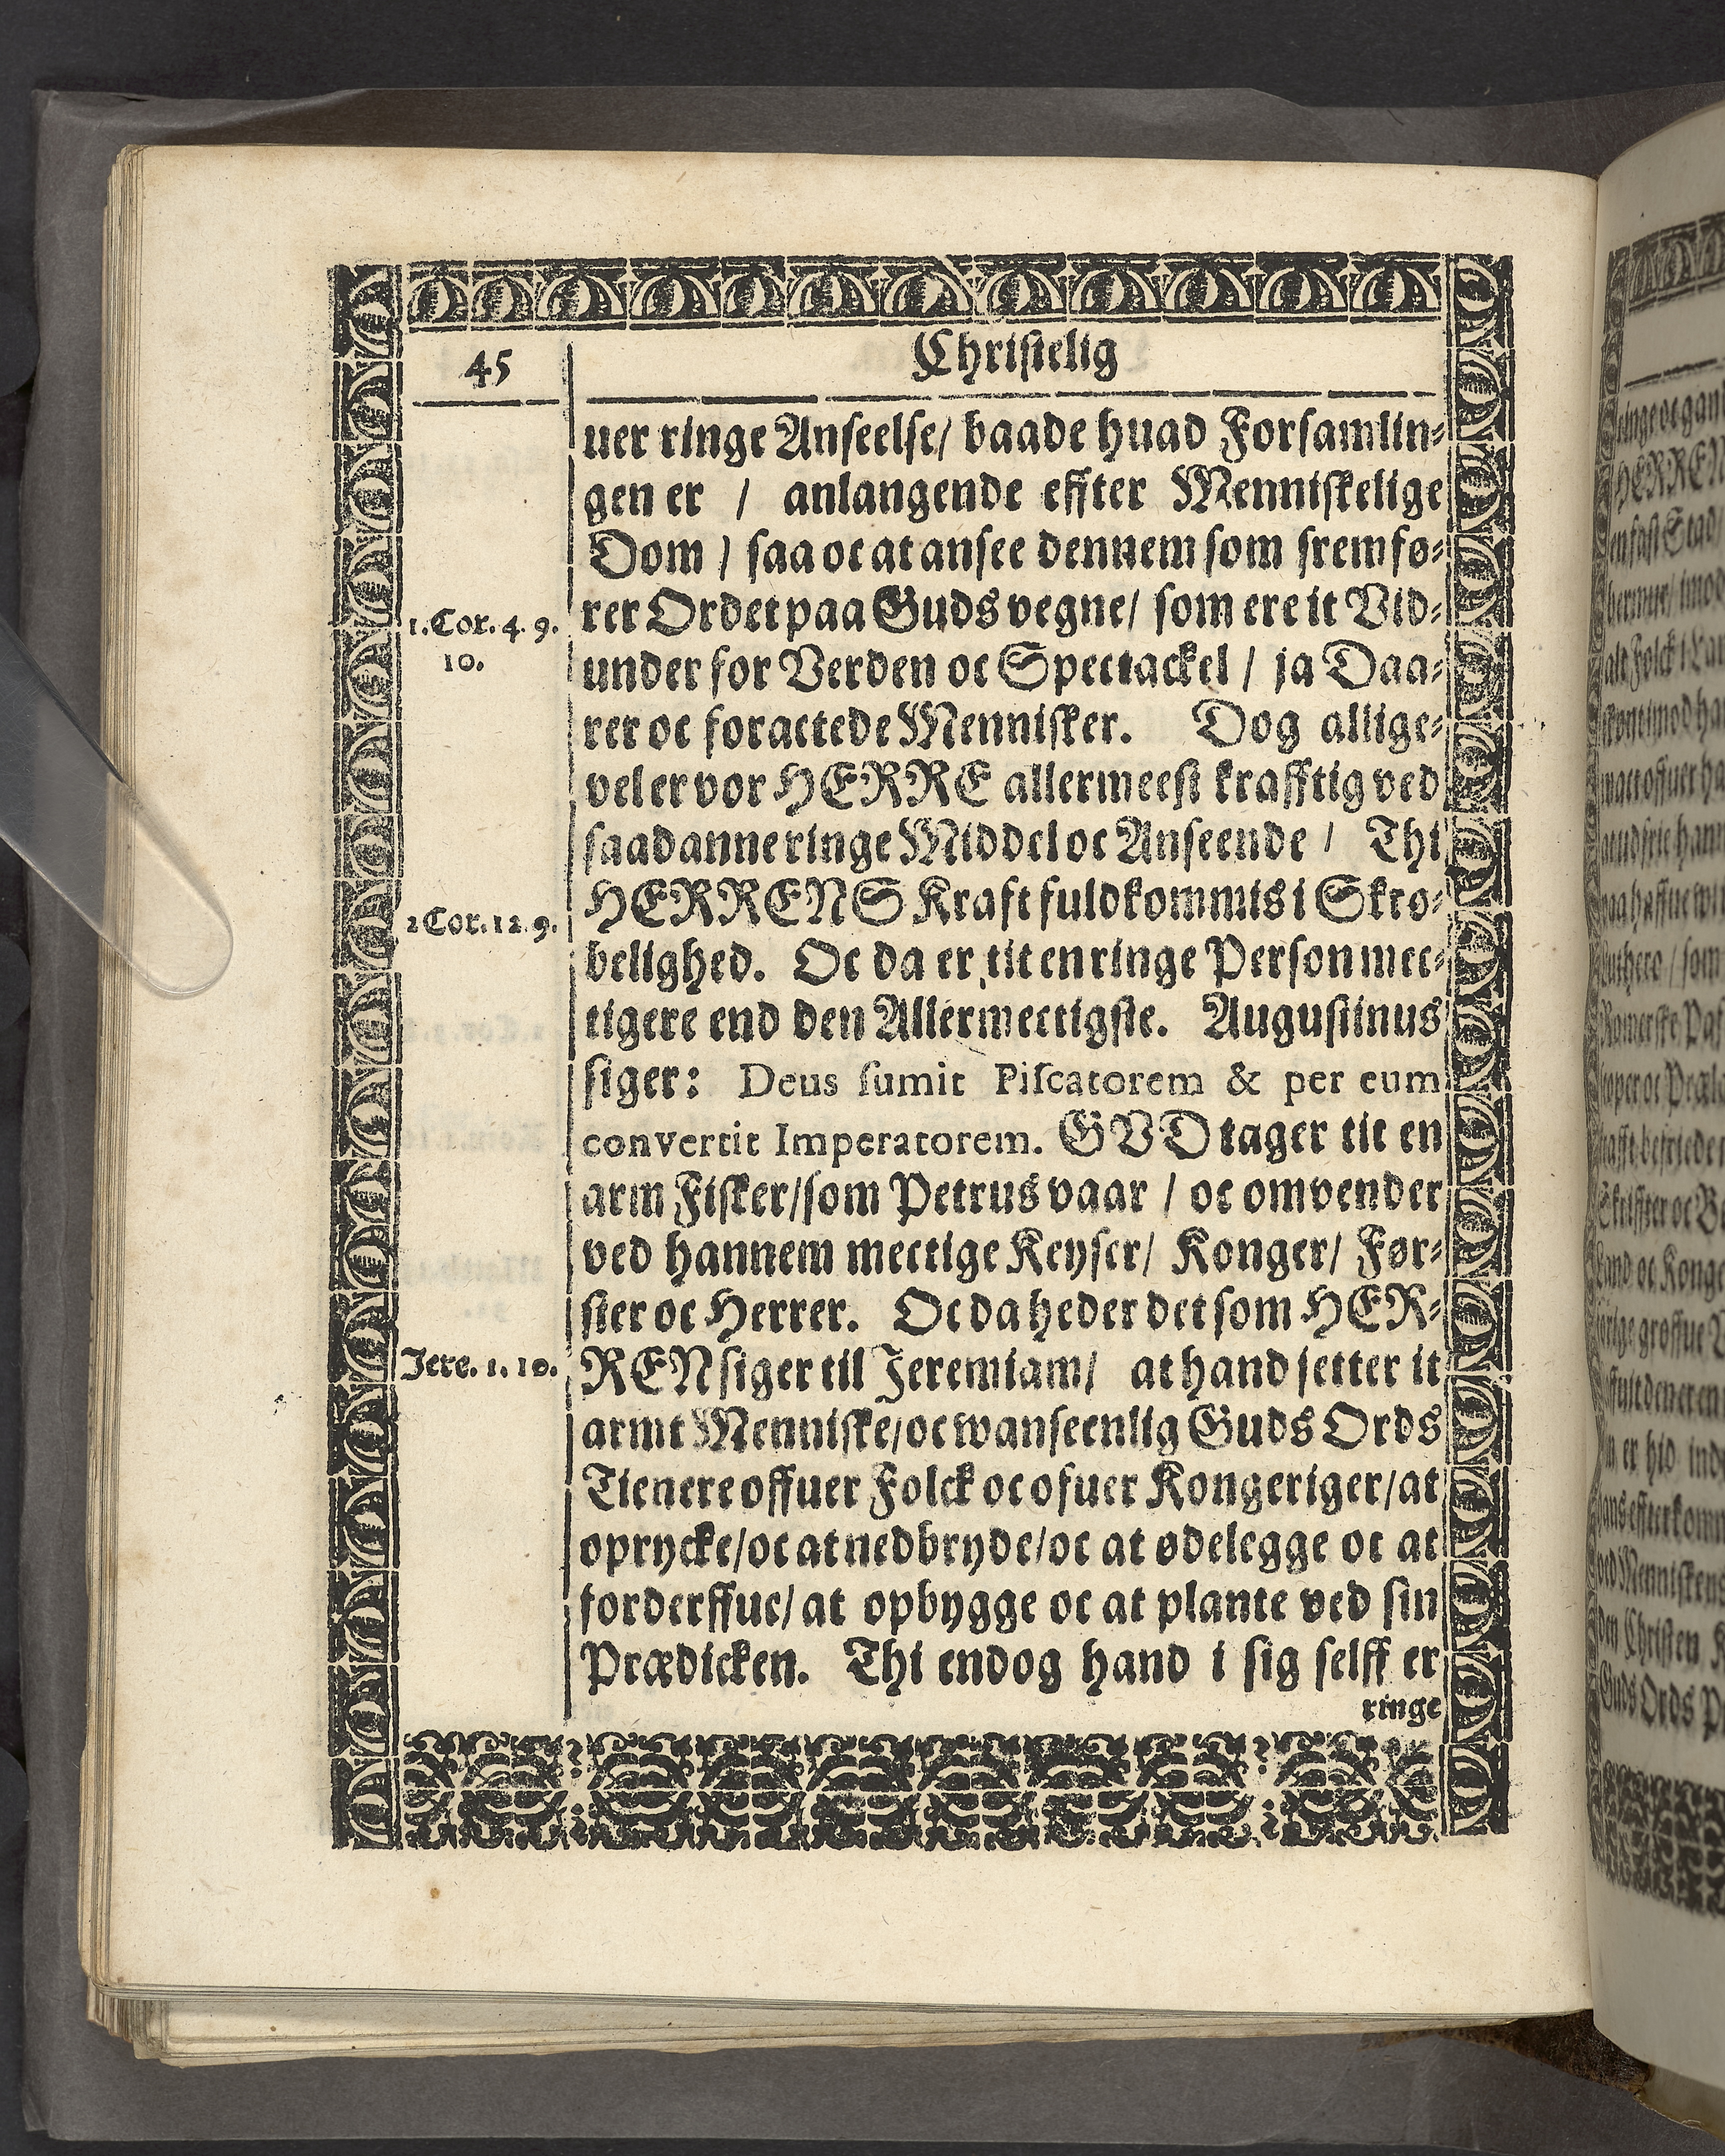 45
Christelig
uer ringe Anseelse/ baade huad Forsamlin-
gen er / anlangende effter Menniskelige
Dom / saa oc at ansee dennem som fremfø-
rer Ordet paa Guds vegne/ som ere it Vid-
1. Cor. 4. 9.
10.
under for Verden oc Spectackel / ja Daa-
rer oc foractede Mennisker. Dog allige-
vel er vor HERRE allermeest krafftig ved
saadanne ringe Middel oc Anseende / Thi
HERRENS Kraft fuldkommis i Skrø-
2 Cor. 12. 9.
belighed. Oc da er tit en ringe Person mec-
tigere end den Allermectigste. Augustinus
siger: Deus ſumit Piſcatorem & per eum
convertit Imperatorem. GVD tager tit en
arm Fisker/ som Petrus vaar / oc omvender
ved hannem mectige Keyser/ Konger/ Før-
ster oc Herrer. Oc da heder det som HER-
REN siger til Jeremiam/ at hand setter it
Jere. 1. 10.
armt Menniske/ oc wanseenlig Guds Ords
Tienere offuer Folck oc ofuer Kongeriger/ at
oprycke/ oc at nedbryde/ oc at ødelegge oc at
forderffue/ at opbygge oc at plante ved sin
Prædicken. Thi endog hand i sig selff er
ringe